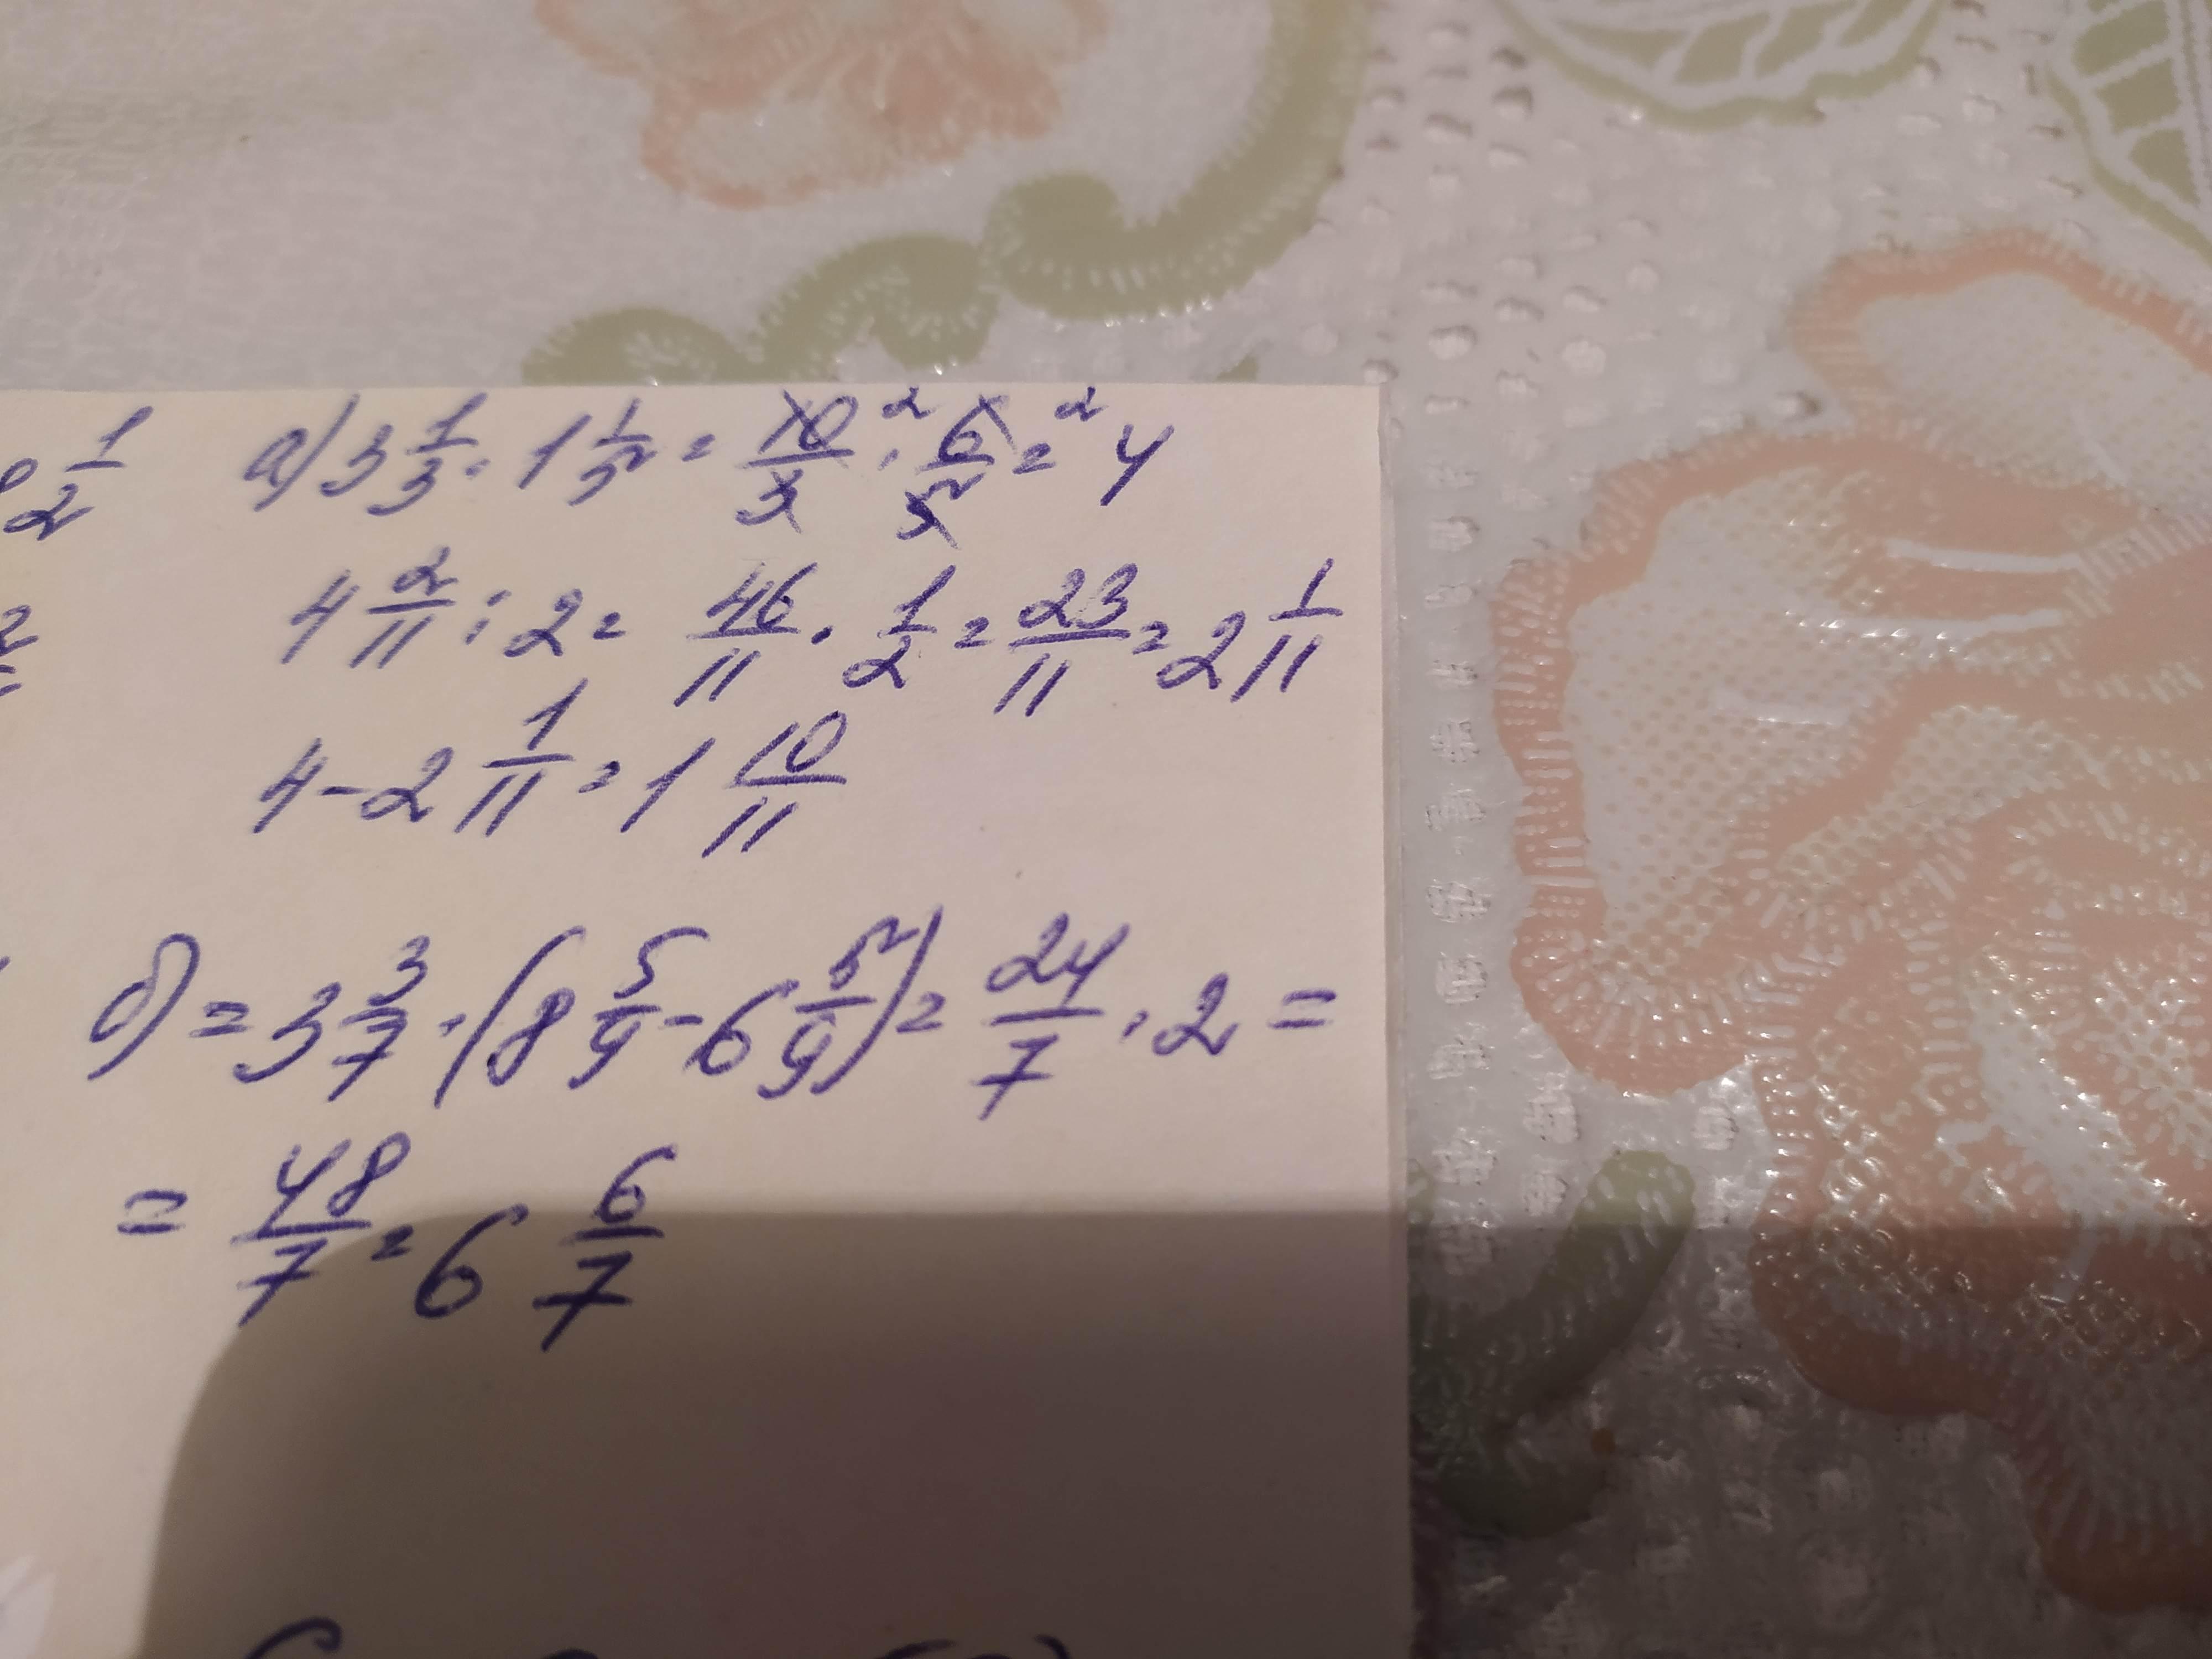 1/2 а) 3 1/3 · 1 1/5 = 10/3 · 2 6/5 = 2 4
4 2/11 : 2 = 46/11 · 1/2 = 23/11 = 2 1/11
4 - 2 1/11 = 1 10/11
б) = 3 3/7 · (8 5/9 - 6 5/9) = 24/7 · 2 =
= 48/7 = 6 6/7